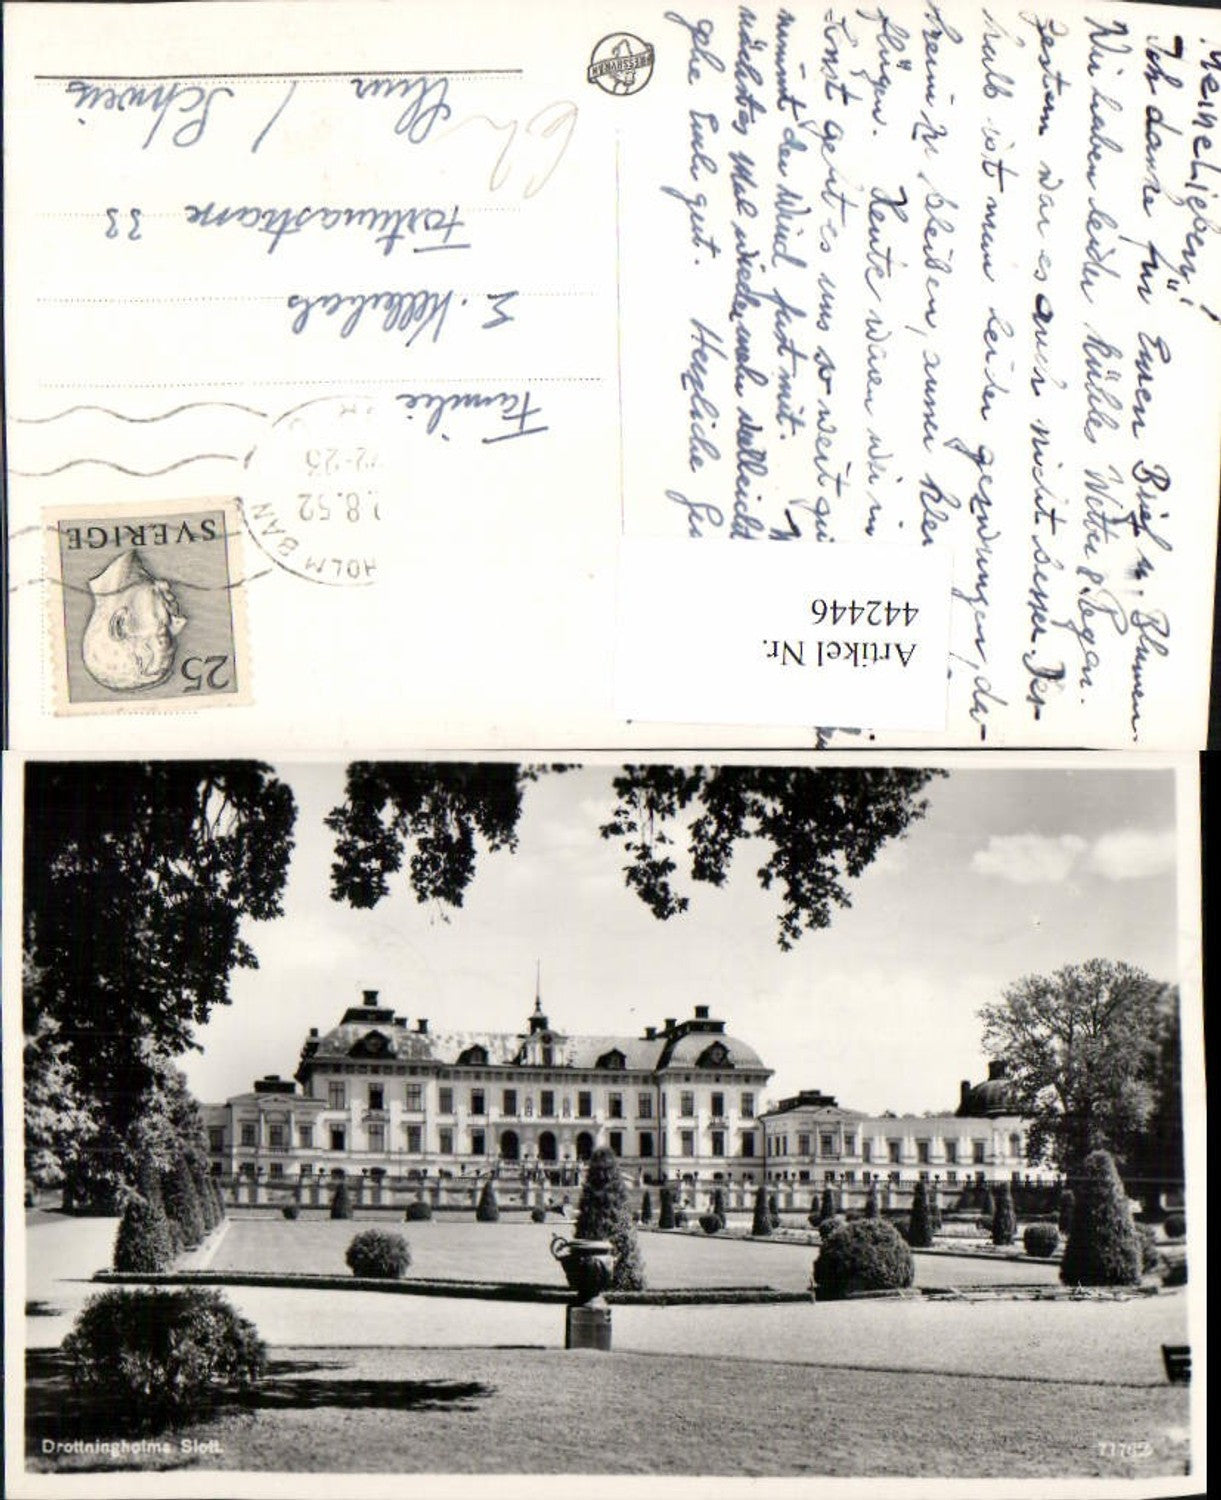 Meine Lieben!
Ich danke für Euren Brief u. Blumen.
Wir haben leider kühles Wetter & Regen.
Gestern war es auch nicht besser. Des-
halb ist man leider gezwungen, da-
heim zu bleiben, ausser klei
flügen. Heute waren wir in
Sonst geht es uns so weit gu
nimmt der Wind fast mit.
nächstes Mal wieder mehr vielleicht
gehe Euch gut. Herzliche Gr
PRESSBYRÅN
Familie
E. Kellerhals
Fortunastrasse 33
Chur / Schweiz
Ch
HOLM BAN
.8.52
SVERIGE
25
Artikel Nr.
442446
Drottningholms Slott.